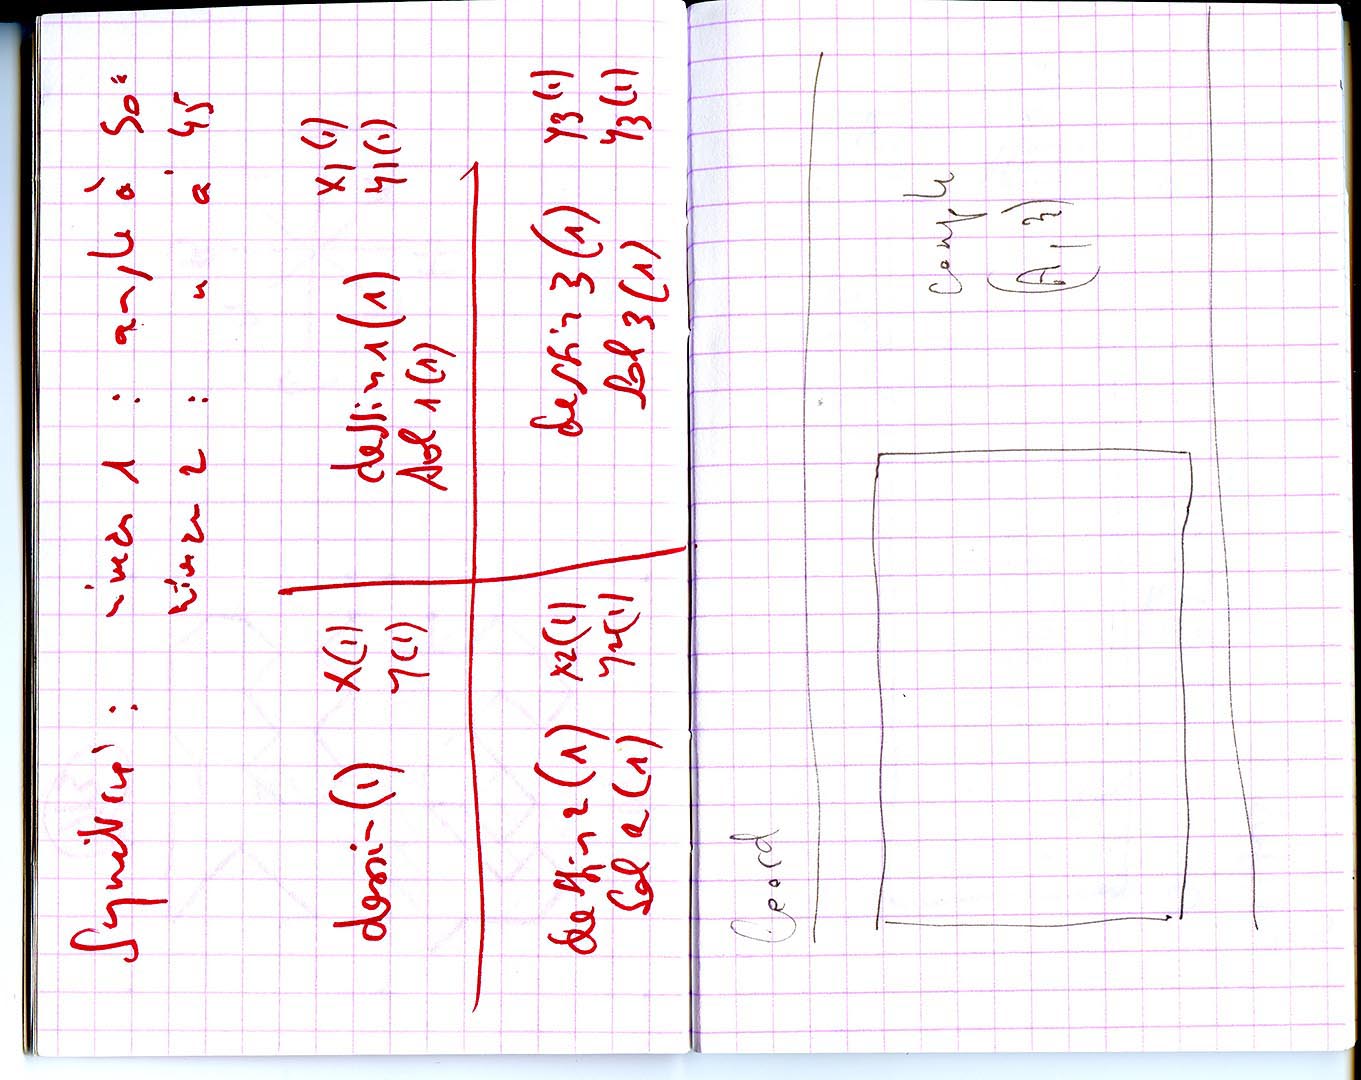 Symétrie : niveau 1 : angle à 90°
niveau 2 : " à 45
dessin(1) X(1)
Y(1)
dessin1(1) X1(1)
Sol1(1) Y1(1)
dessin2(1) X2(1)
Sol2(1) Y2(1)
dessin3(1) Y3(1)
Sol3(1) Y3(1)
Coord
couple
(A, 3)